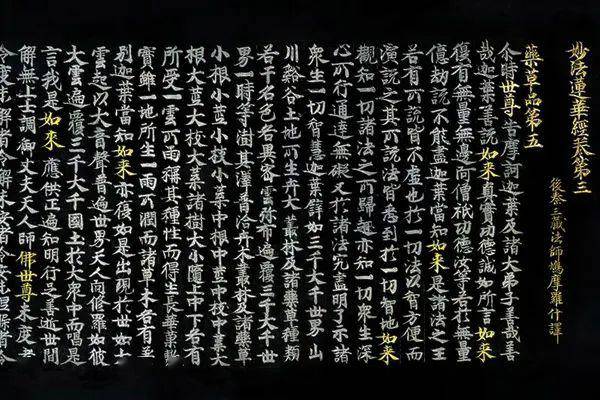 妙法蓮華經卷第三
後秦三藏法師鳩摩羅什譯
藥草品第五
尒時世尊告摩訶迦葉及諸大弟子善哉善
哉迦葉善說如來真實功德誠如所言如來
復有無量無邊阿僧祇功德汝等若於無量
億劫說不能盡迦葉當知如來是諸法之王
若有所說皆不虛也於一切法以智方便而
演說之其所說法皆悉到於一切智地如來
觀知一切諸法之所歸趣亦知一切眾生深
心所行通達無礙又於諸法究盡明了示諸
眾生一切智慧迦葉譬如三千大千世界山
川谿谷土地所生卉木藂林及諸藥草種類
若干名色各異密雲弥布遍覆三千大千世
界一時等澍其澤普洽卉木叢林及諸藥草
小根小莖小枝小葉中根中莖中枝中葉大
根大莖大枝大葉諸樹大小隨上中下各有
所受一雲所雨稱其種性而得生長華菓敷
實雖一地所生一雨所潤而諸草木各有差
別迦葉當知如來亦復如是出現於世如大
雲起以大音聲普遍世界天人阿修羅如彼
大雲遍覆三千大千國土於大眾中而唱是
言我是如來應供正遍知明行足善逝世間
解無上士調御丈夫天人師佛世尊未度者
令度未解者令解未安者令安未涅槃者令